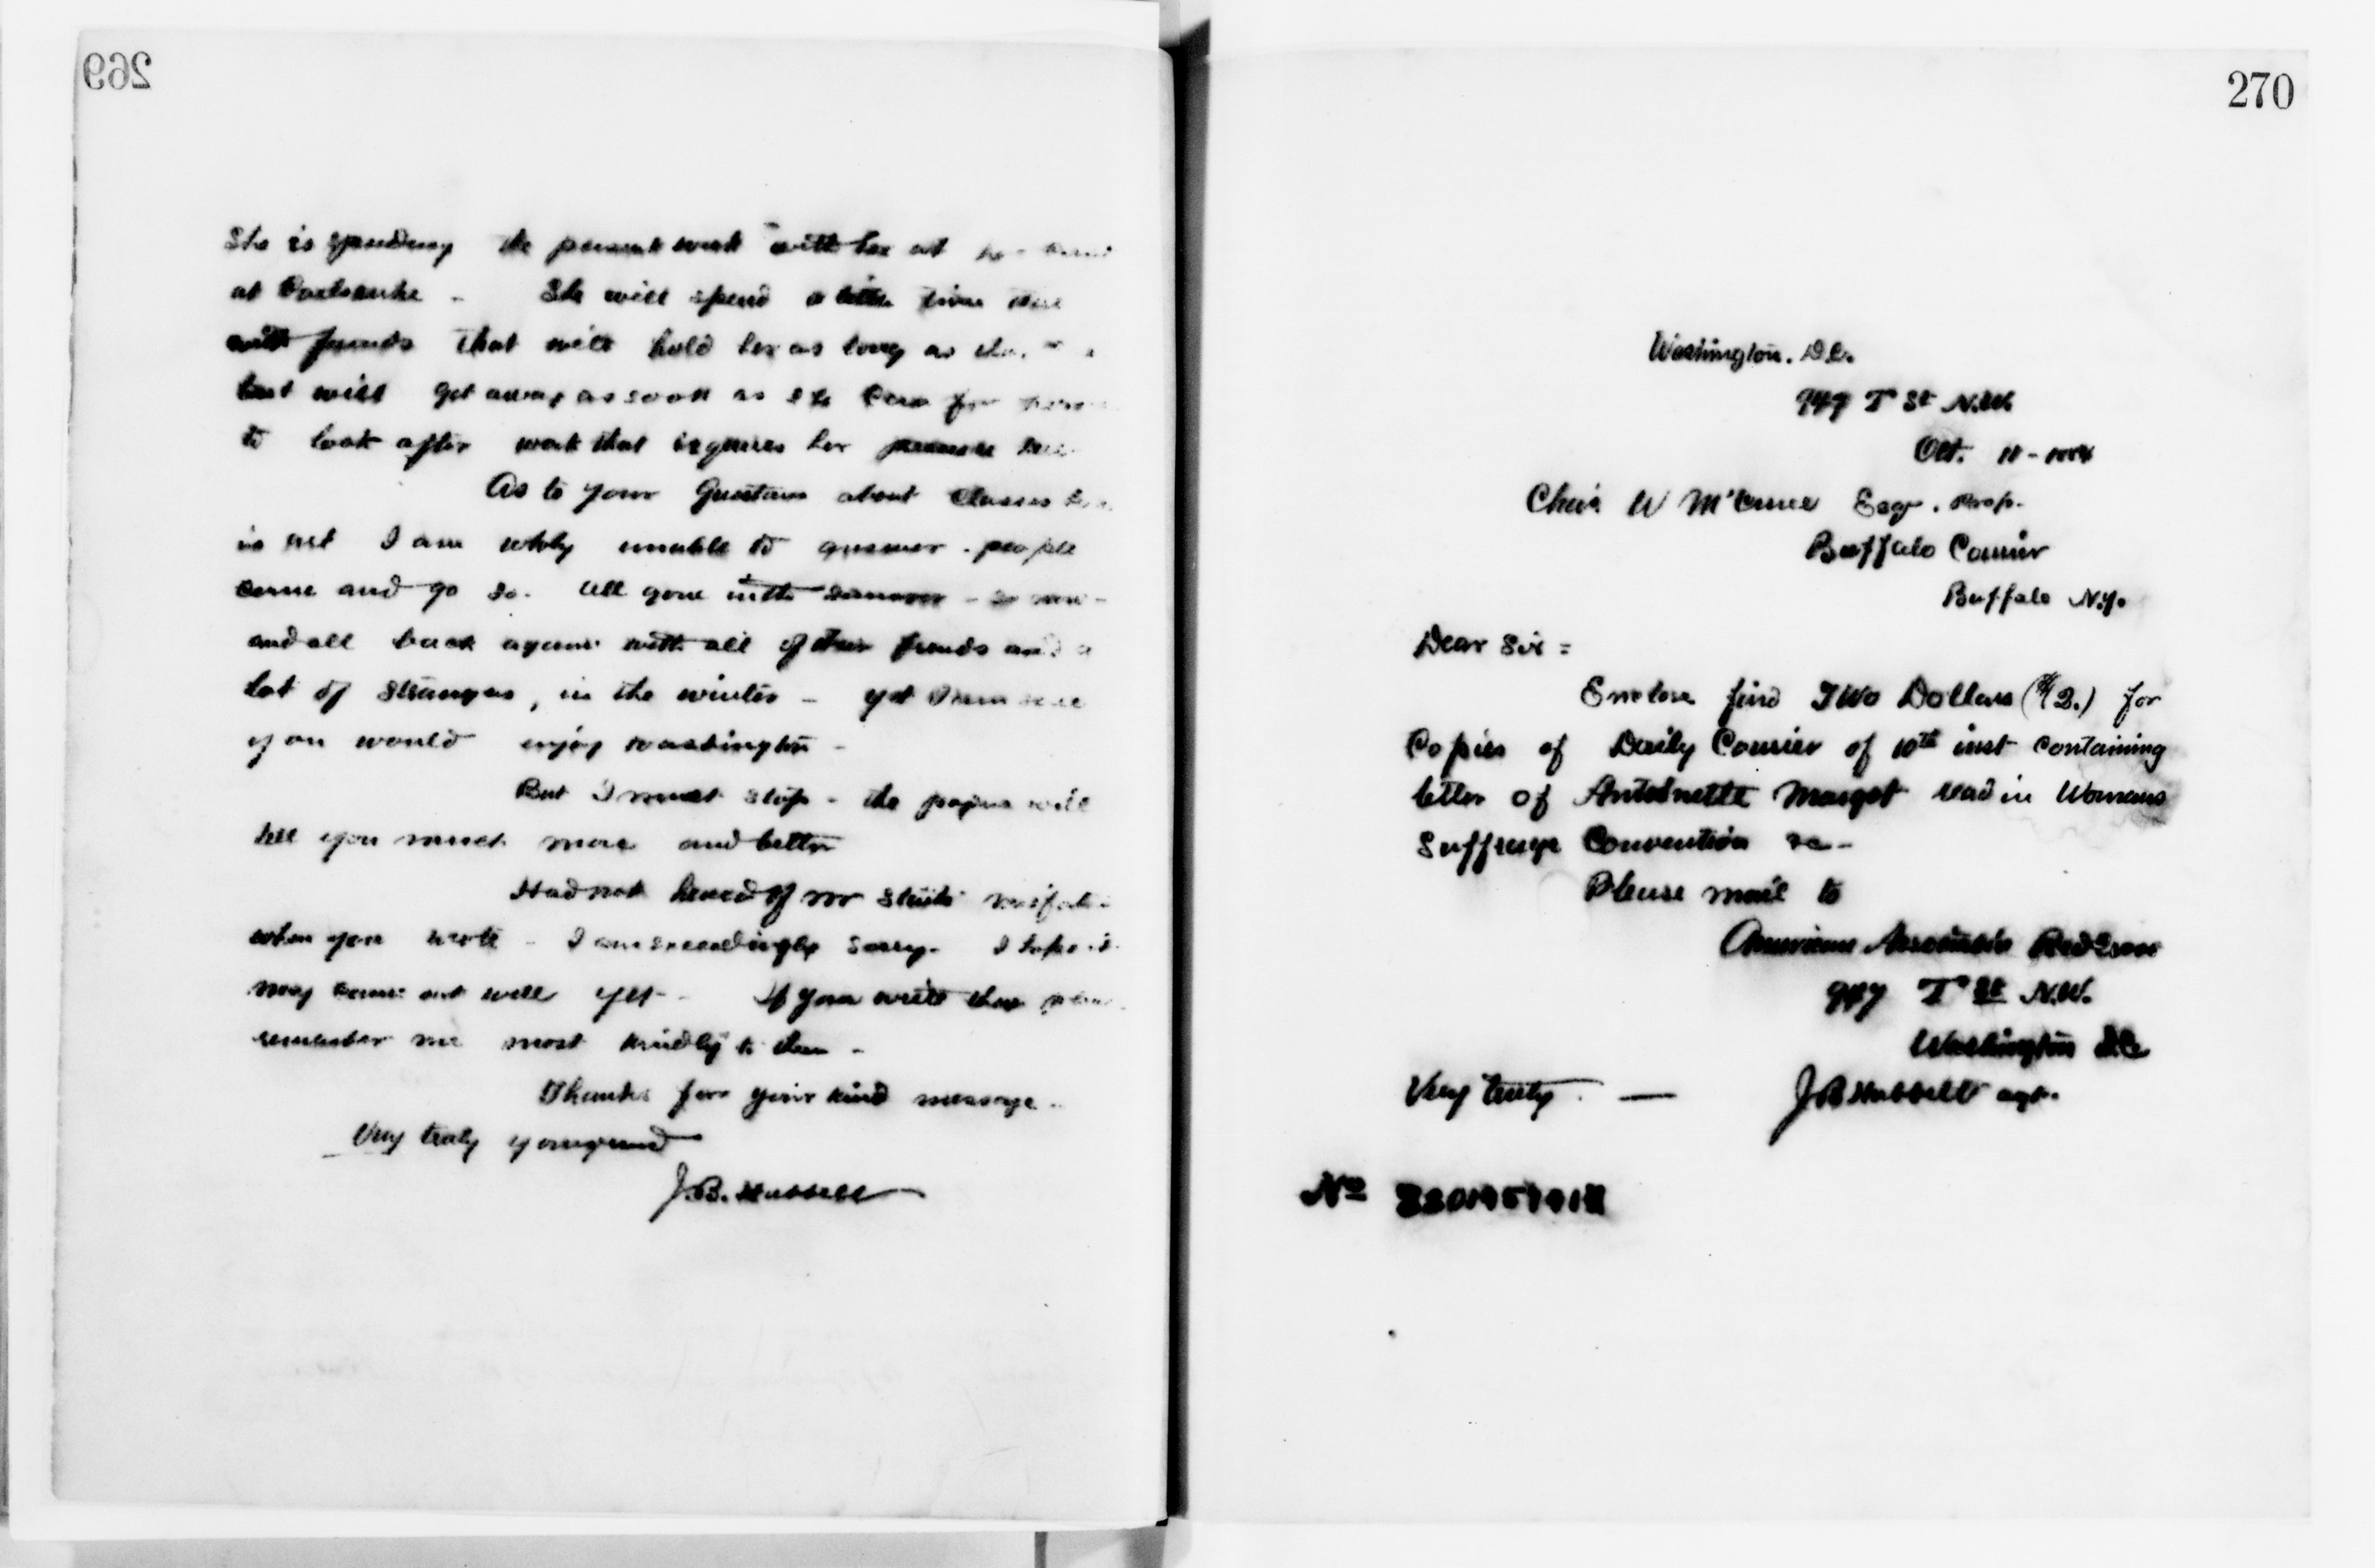 269
She is spending the present week with her at
at Carlsruhe - She will spend a little time
with friends that will hold her as long as
but will get away as soon as she can for
to look after work that requires her presence
As to your Questions about Classes
is not I am wholy unable to answer. people
come and go so. All gone in the summer - so
and all back again with all of their friends and a
lot of strangers, in the winter - yet I am sure
you would enjoy Washington -
But I must stop - the papers will
tell you much more and better
Had not heard of mr
when you wrote - I am exceedingly sorry. I hope it
may come out well yet - If you write them please
remember me most kindly to them -
Thanks for your kind message -
Very truly your friend
J.B. Hubbell
270
Washington. D.C.
947 T St N.W.
Oct. 11 - 1884
Chas. W McCune Esqr. Prop.
Buffalo Courier
Buffalo N.Y.
Dear Sir =
Enclose find Two Dollars ($2.) for
Copies of Daily Courier of 10th inst containing
letter of Antoinette Margot read in Womans
Suffrage Convention &c -
Please mail to
American Association Red Cross
947 T St N.W.
Washington D.C.
Very truly - J B Hubbell agt.
No